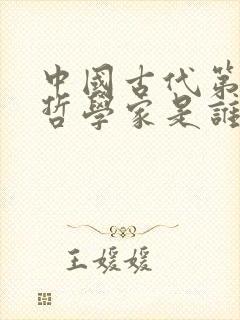 中國古代第
哲學家是誰
王媛媛